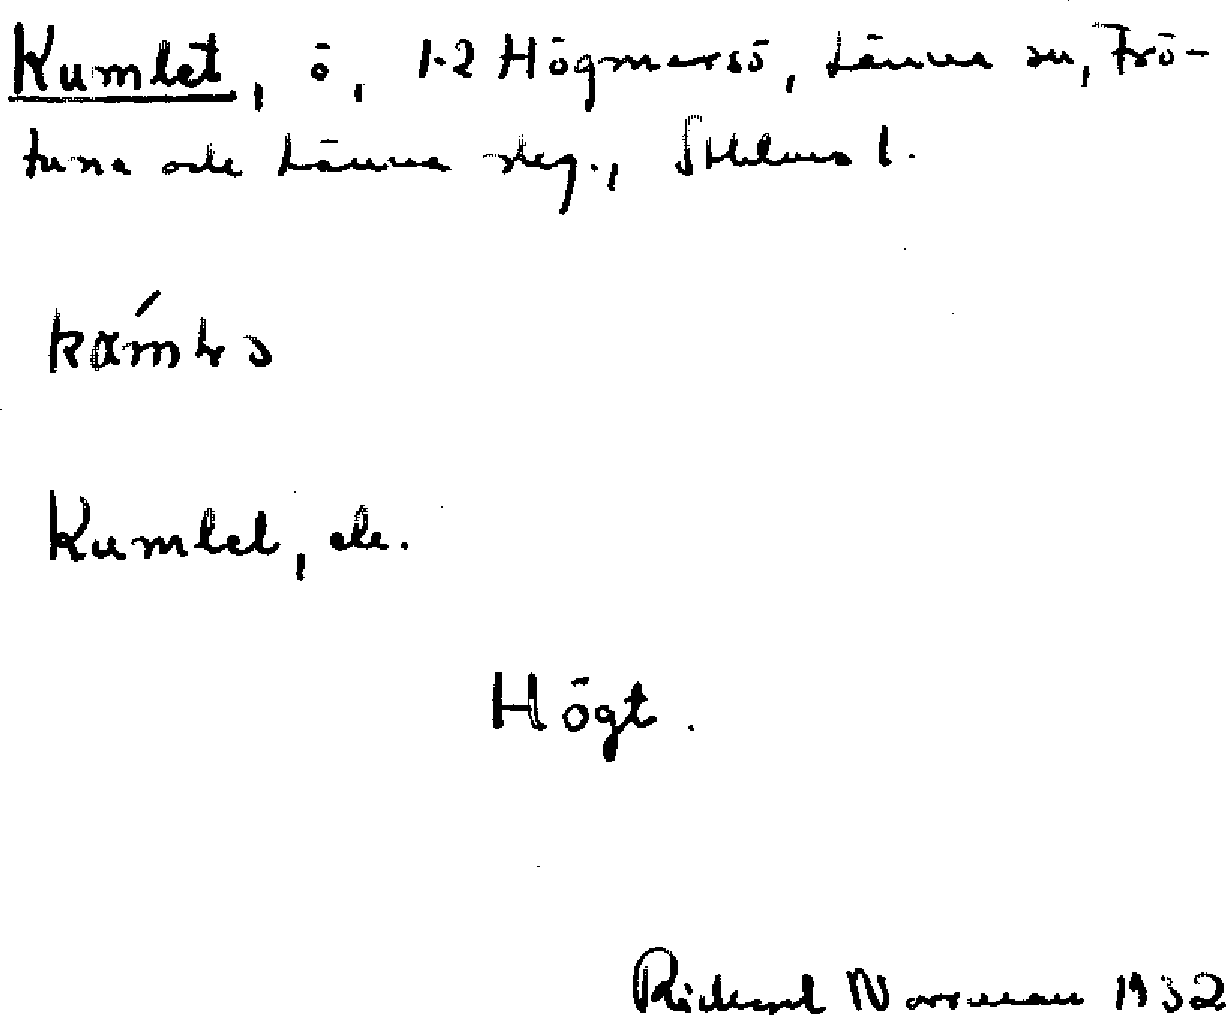 Kumlet, ö, 1.2 Högmarsö, Länna sn, Frö-
tuna och Länna skg., Sthlms l.
Kumlet, ele.
Högt.
Rickard Norrman 1932